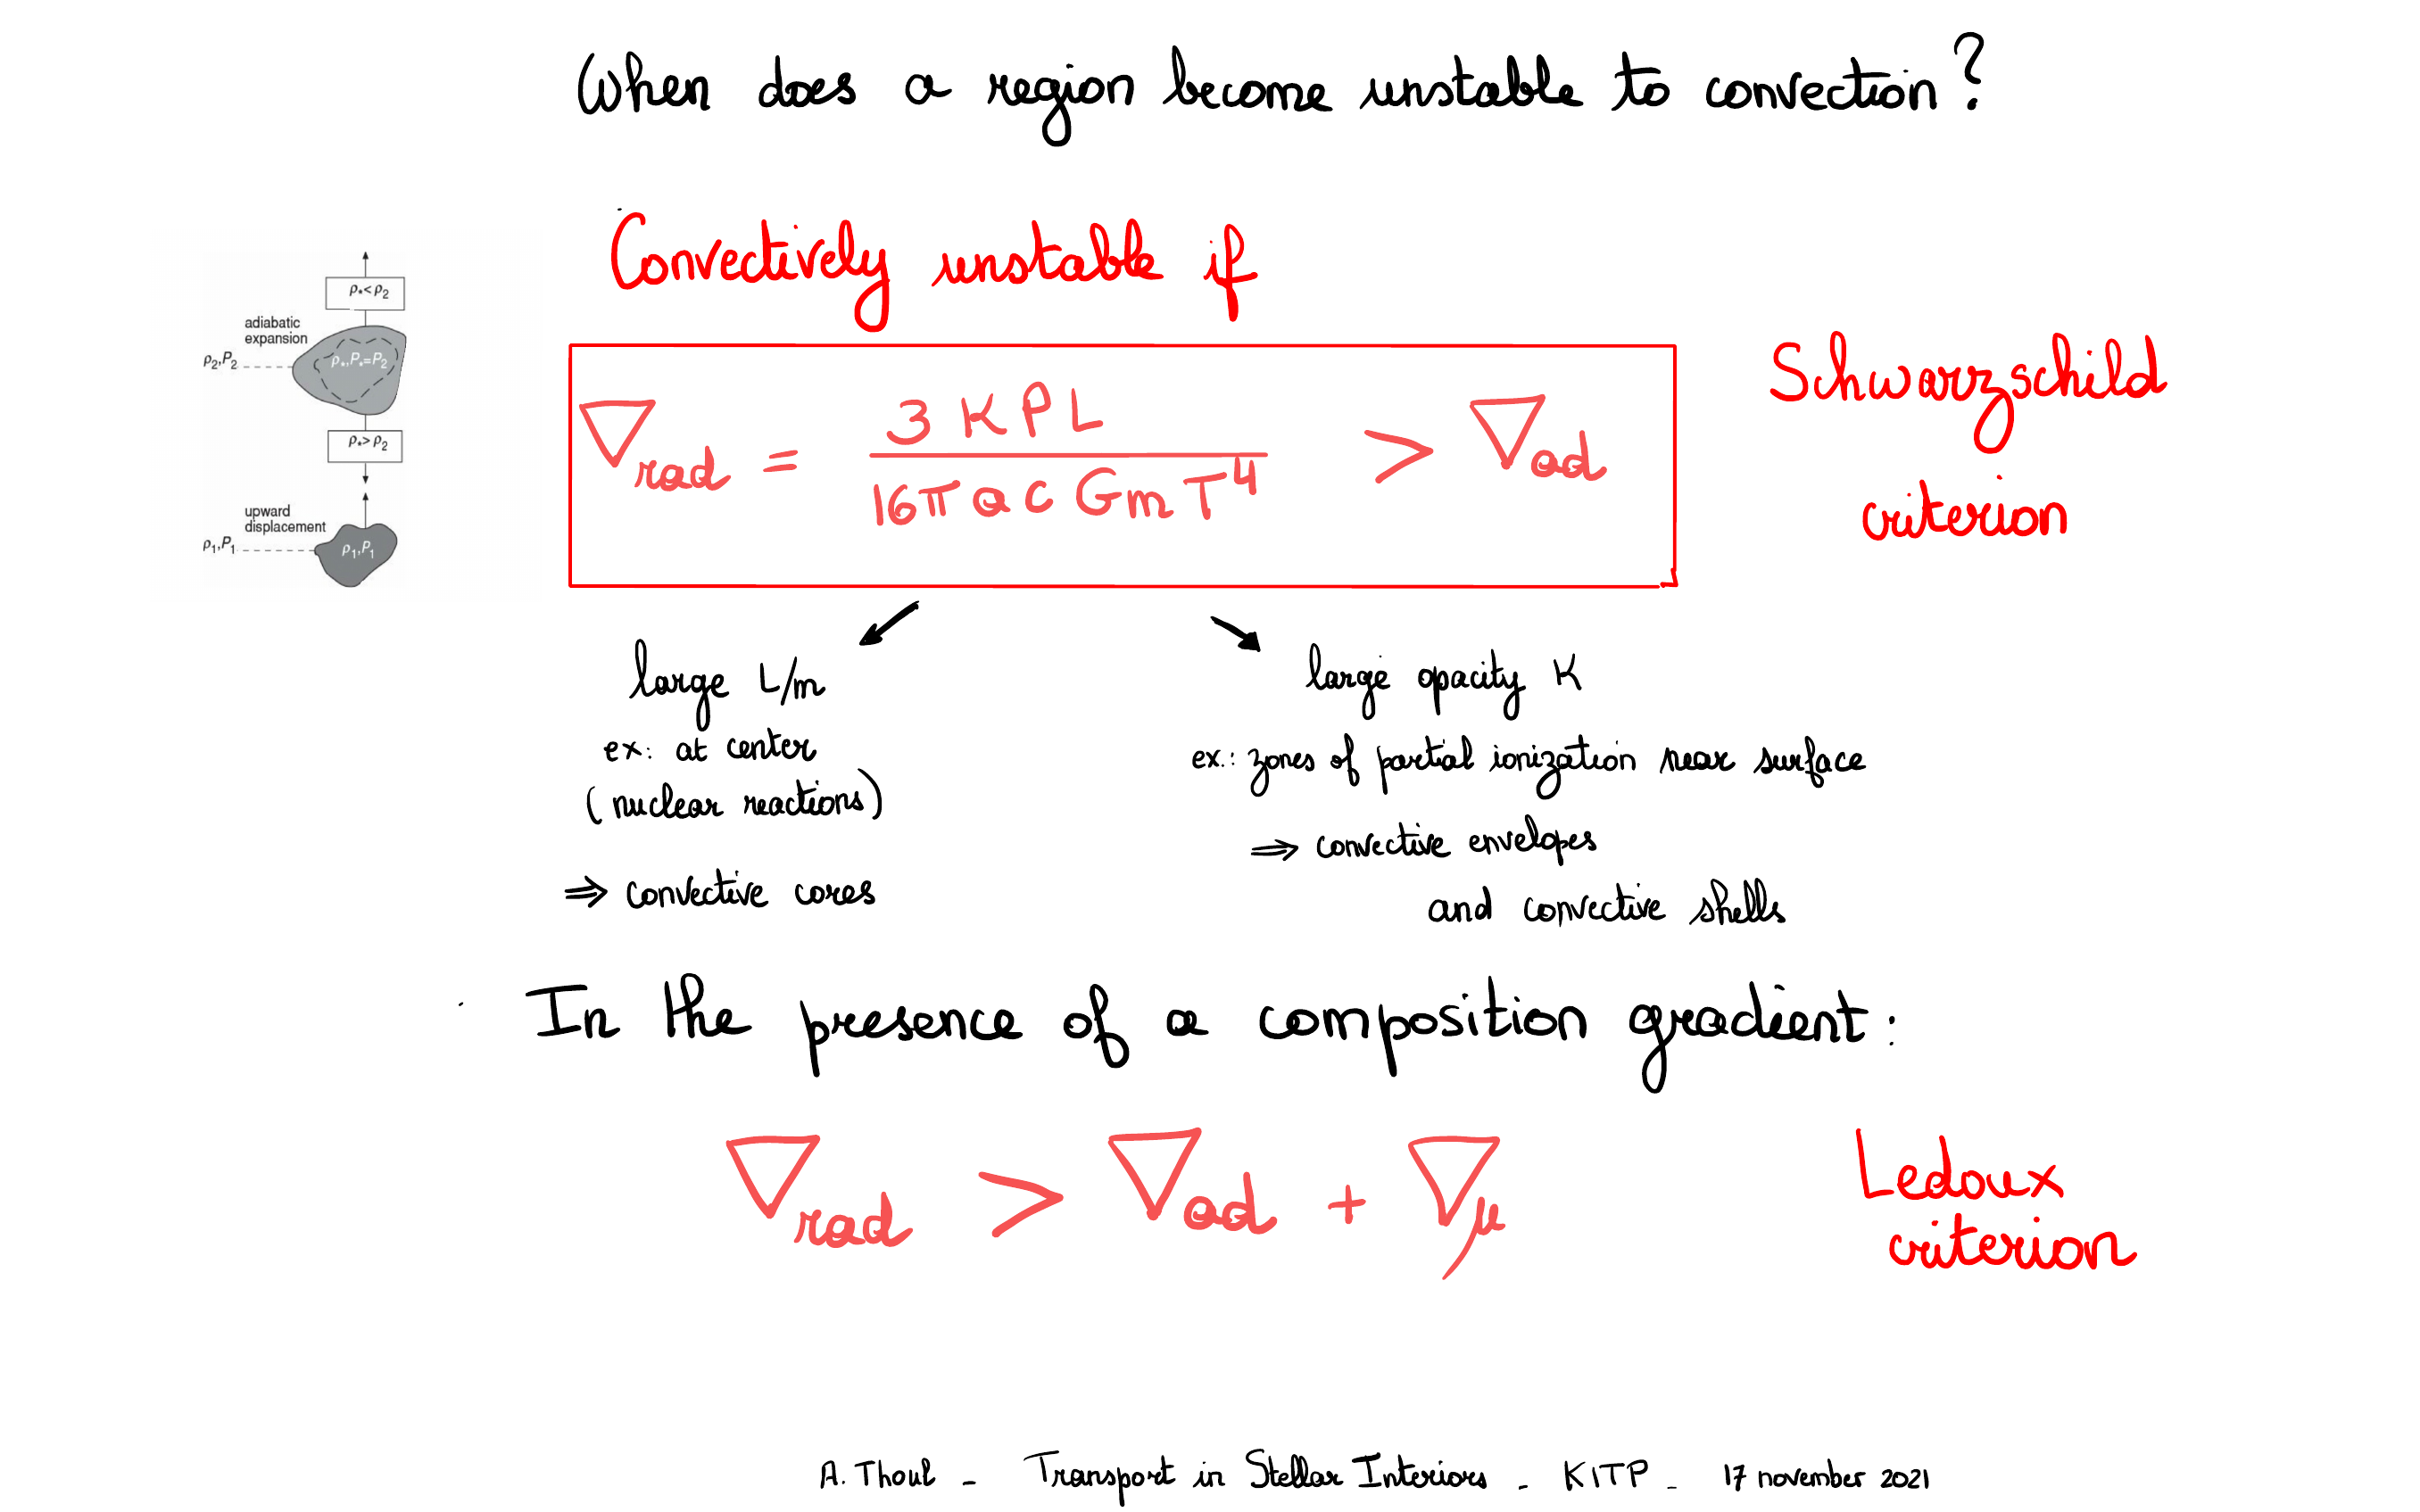 When does a region become unstable to convection?
Convectively unstable if
ρ*<ρ2
adiabatic
expansion
ρ2,P2
ρ*,P*=P2
ρ*>ρ2
upward
displacement
ρ1,P1
ρ1,P1
∇rad = 3 K P L / 16π a c G m T^4 > ∇ad
Schwarzschild
criterion
large L/m
ex: at center
(nuclear reactions)
⇒ convective cores
large opacity K
ex.: zones of partial ionization near surface
⇒ convective envelopes
and convective shells
In the presence of a composition gradient:
∇rad > ∇ad + ∇μ
Ledoux
criterion
A. Thoul - Transport in Stellar Interiors - KITP - 17 november 2021